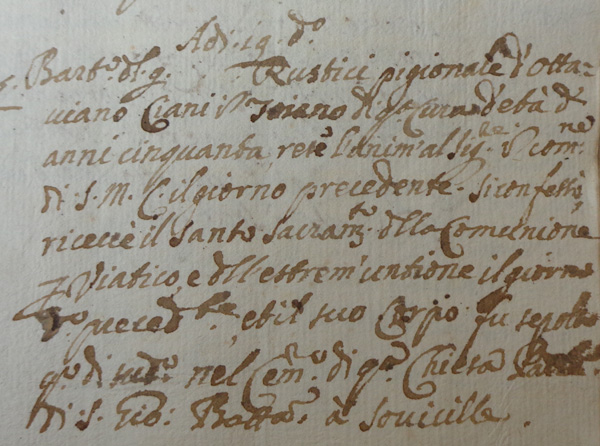 Adi. 19 do
Barto. dl q. Rustici pigionale d'Otta-
viano Ciani in di qa. Cura d'età di
anni cinquanta, rese l'anima al Sige. in comne
di S. M. C. il giorno precedente. si confessò,
riceuè il Santo Sacramto. dlla Comunione
p Viatico, e dll'estrem'untione il giorno
do preced.te, et il suo Corpo fu sepolto
qo. di nel Cemo. di qa. Chiesa
di S. Gio: Batta. à Souicille.